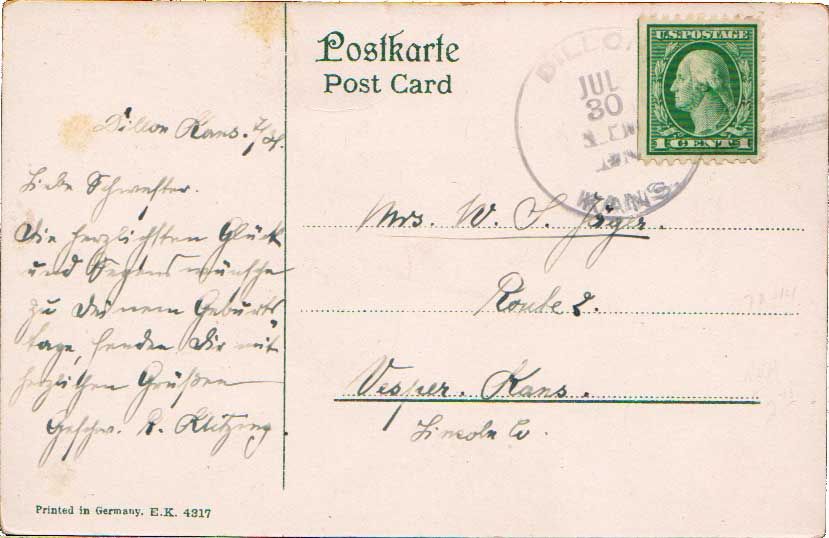 Postkarte
Post Card
DILLON
JUL
30
KANS.
U.S. POSTAGE
1 CENT 1
Dillon Kans.
Liebe Schwester.
Die herzlichsten Glück
und Segenswünsche
zu Deinem Geburts
tage, senden Dir mit
herzlichen Grüßen
Geschw. R. Klitzing.
Mrs. W. S. Jäger.
Route 2.
Vesper. Kans.
Lincoln Co.
Printed in Germany. E.K. 4317